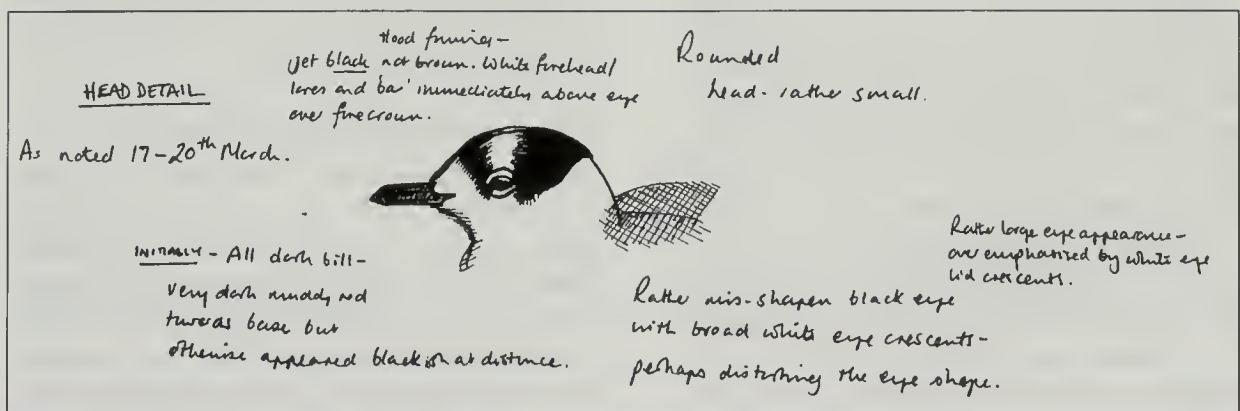 HEAD DETAIL
As noted 17-20th March.
Hood forming-
jet black not brown. White forehead/
lores and 'bar' immediately above eye
over forecrown.
Rounded
head- rather small.
INITIALLY - All dark bill-
very dark muddy red
towards base but
otherwise appeared blackish at distance.
Rather mis-shapen black eye
with broad white eye crescents-
perhaps distorting the eye shape.
Rather large eye appearance-
over emphasised by white eye
lid crescents.